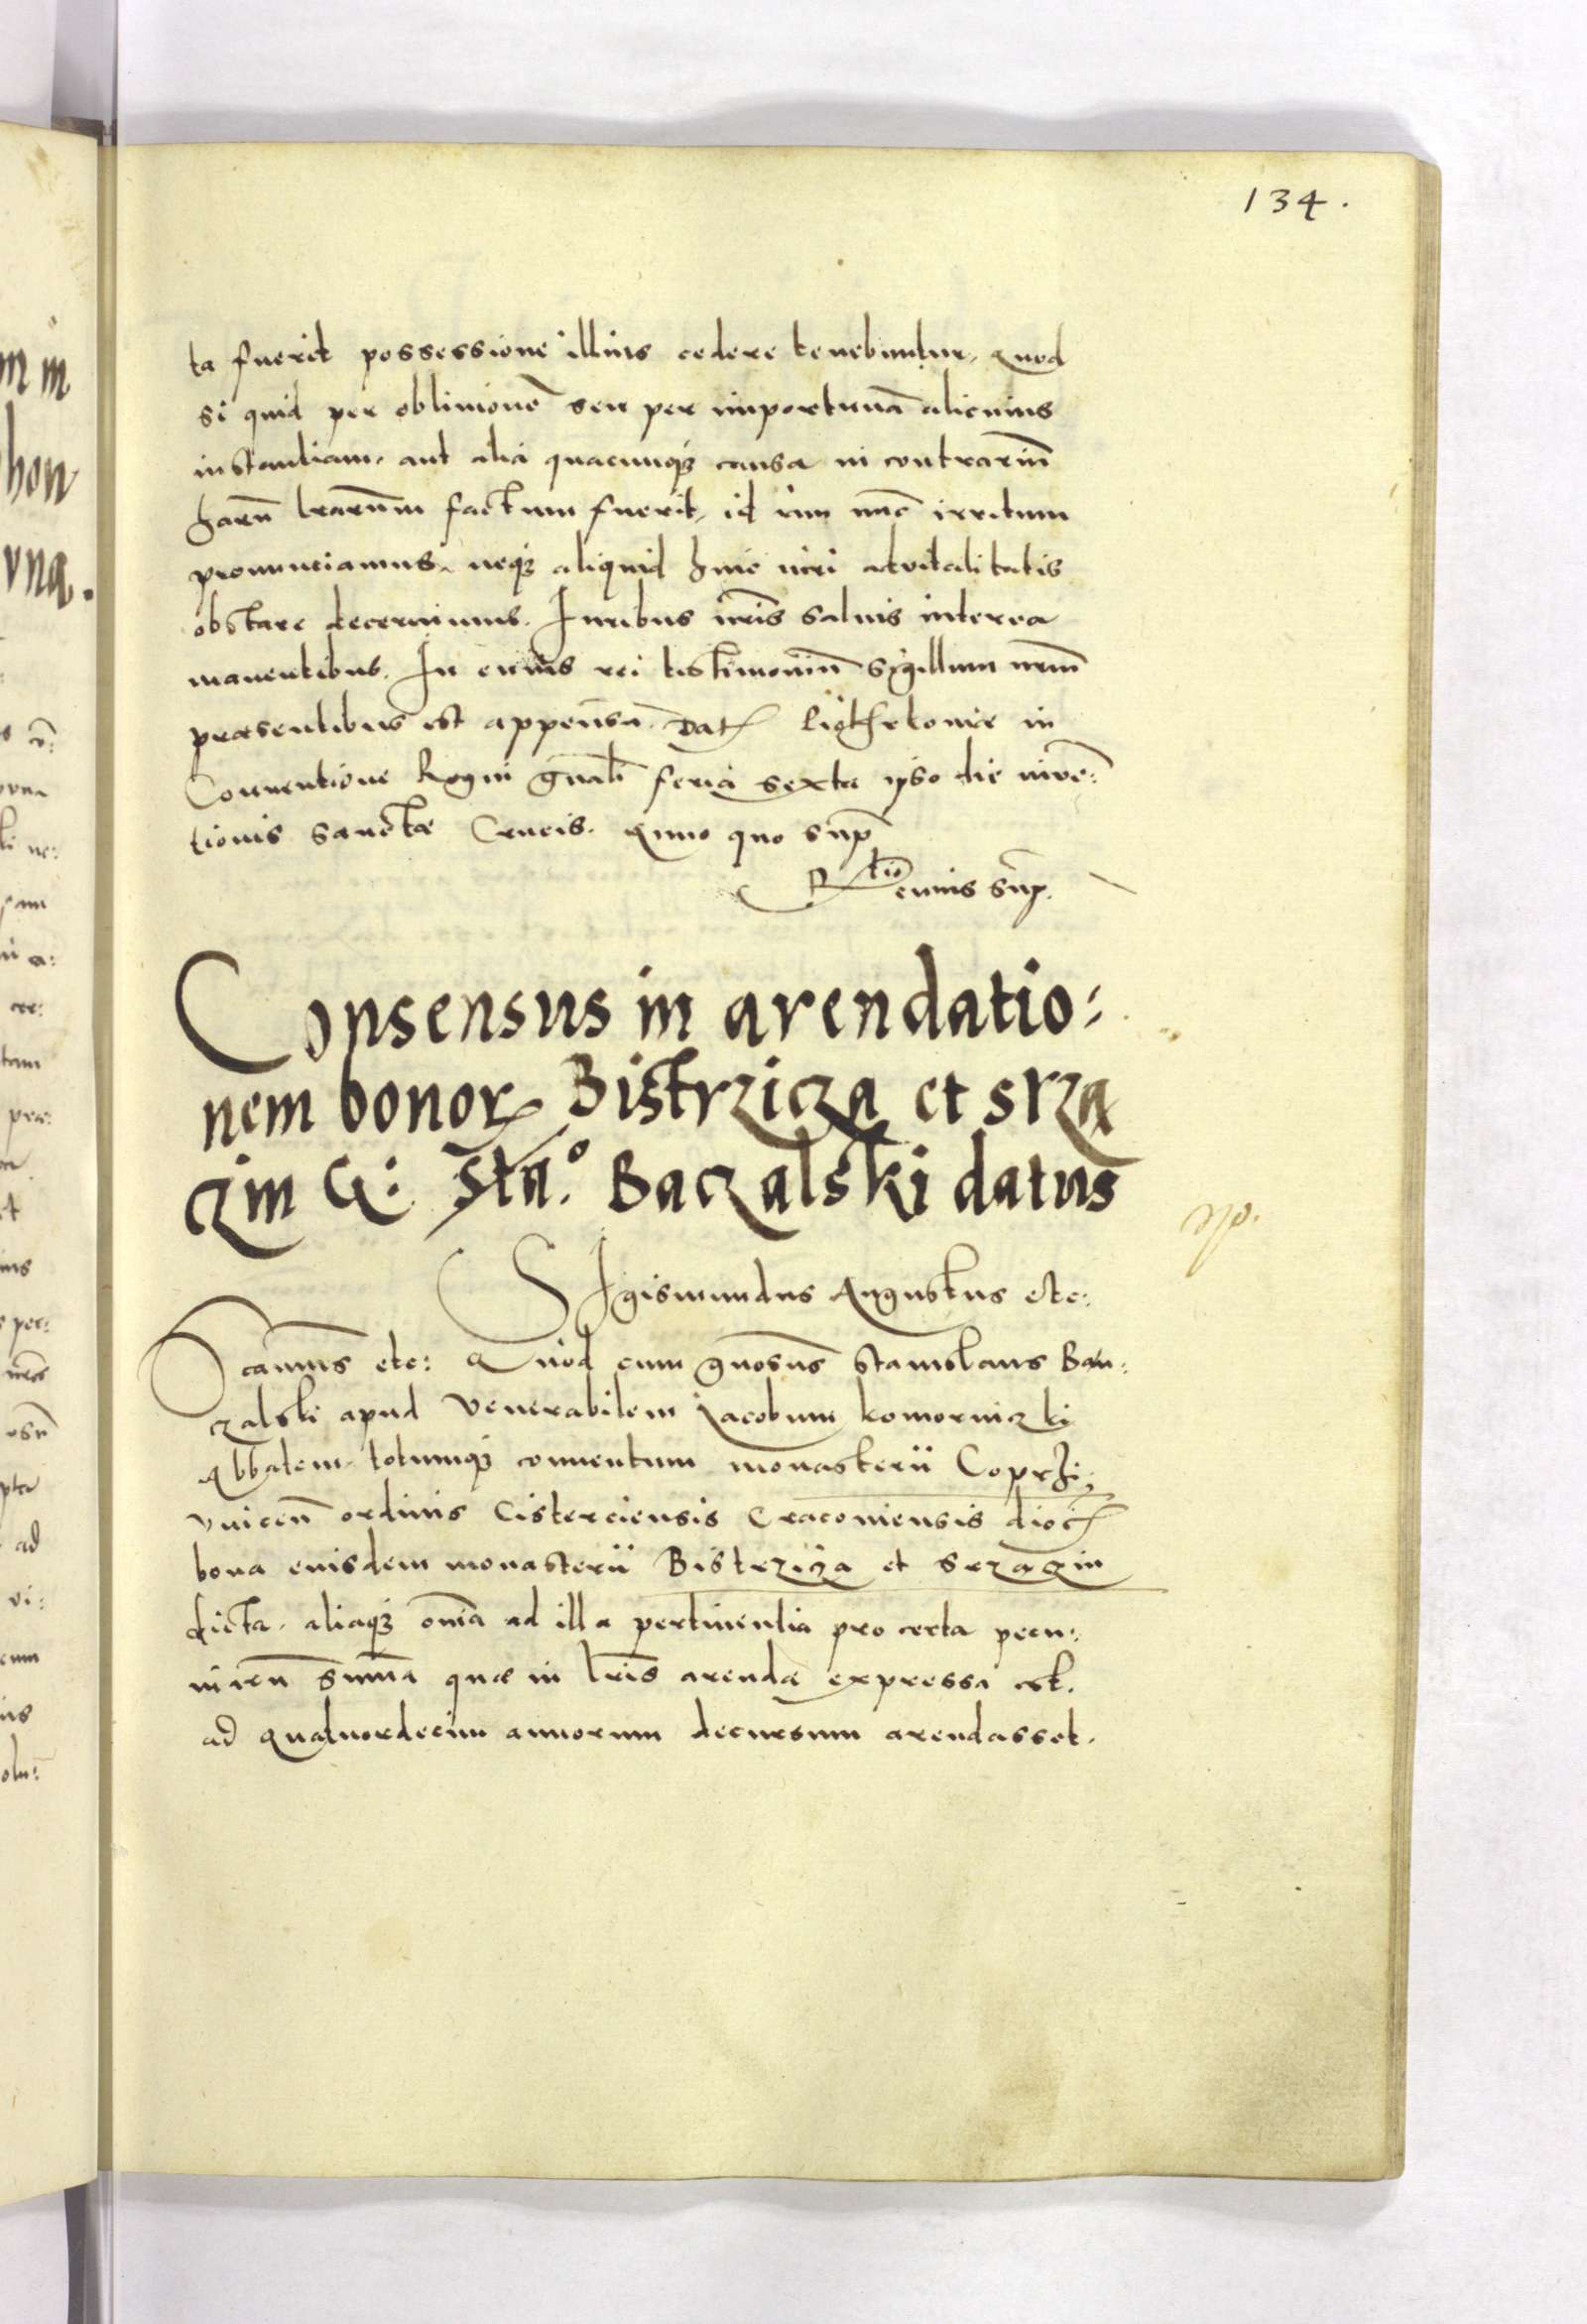 134.
ta fuerit possessione illius cedere tenebuntur, Quod
si quid per obliuionē seu per importunā alicuius
instantiam, aut alia quacunq; causa in contrariū
harū lrarum̄ factum fuerit, id iam nūc irritum
pronunciamus, neq; aliquid huic iuri aduitalitatis
obstare decernimus. Iuribus nrīs saluis interea
manentibus. In cuius rei testimoniū Sigillum nrūm
præsentibus est appensū. Dat Piotrkouiæ in
Conuentione Regni gnāli feria sexta ipso die inuē:
tionis sanctæ Crucis. Anno quo sup̄
Rtio euius sup̄.
Consensus in arendatio:
nem bonor Bistrzicza et srzą
czin G: Sta.o Baczalski datus
Sigismundus Augustus etc:
camus etc: Quod cum gn̄osus Stanislaus Ban:
czalski apud Venerabilem Jacobum komorniczki
Abbatem, totumq; conuentum monasterii Coprzi:
vnicen̄ ordinis Cisterciensis Cracouiensis dioc
bona euisdem monasterii Bistrzicza et Srzączin
dicta, aliaq; om̄ia ad illa pertinentia pro certa pecu:
niarū sum̄a quæ in lrīs arendæ expressa est.
ad quatuordecim annorum decursum arendasset.